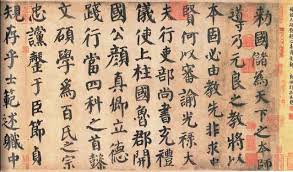 勅國儲為天下之本師
導乃元良之教將以
本固必由教先非求忠
賢何以審諭光祿大
夫行吏部尚書充禮
儀使上柱國魯郡開
國公顏真卿立德
踐行當四科之首懿
文碩學為百氏之宗
忠讜罄于臣節貞
規存乎士範述職中